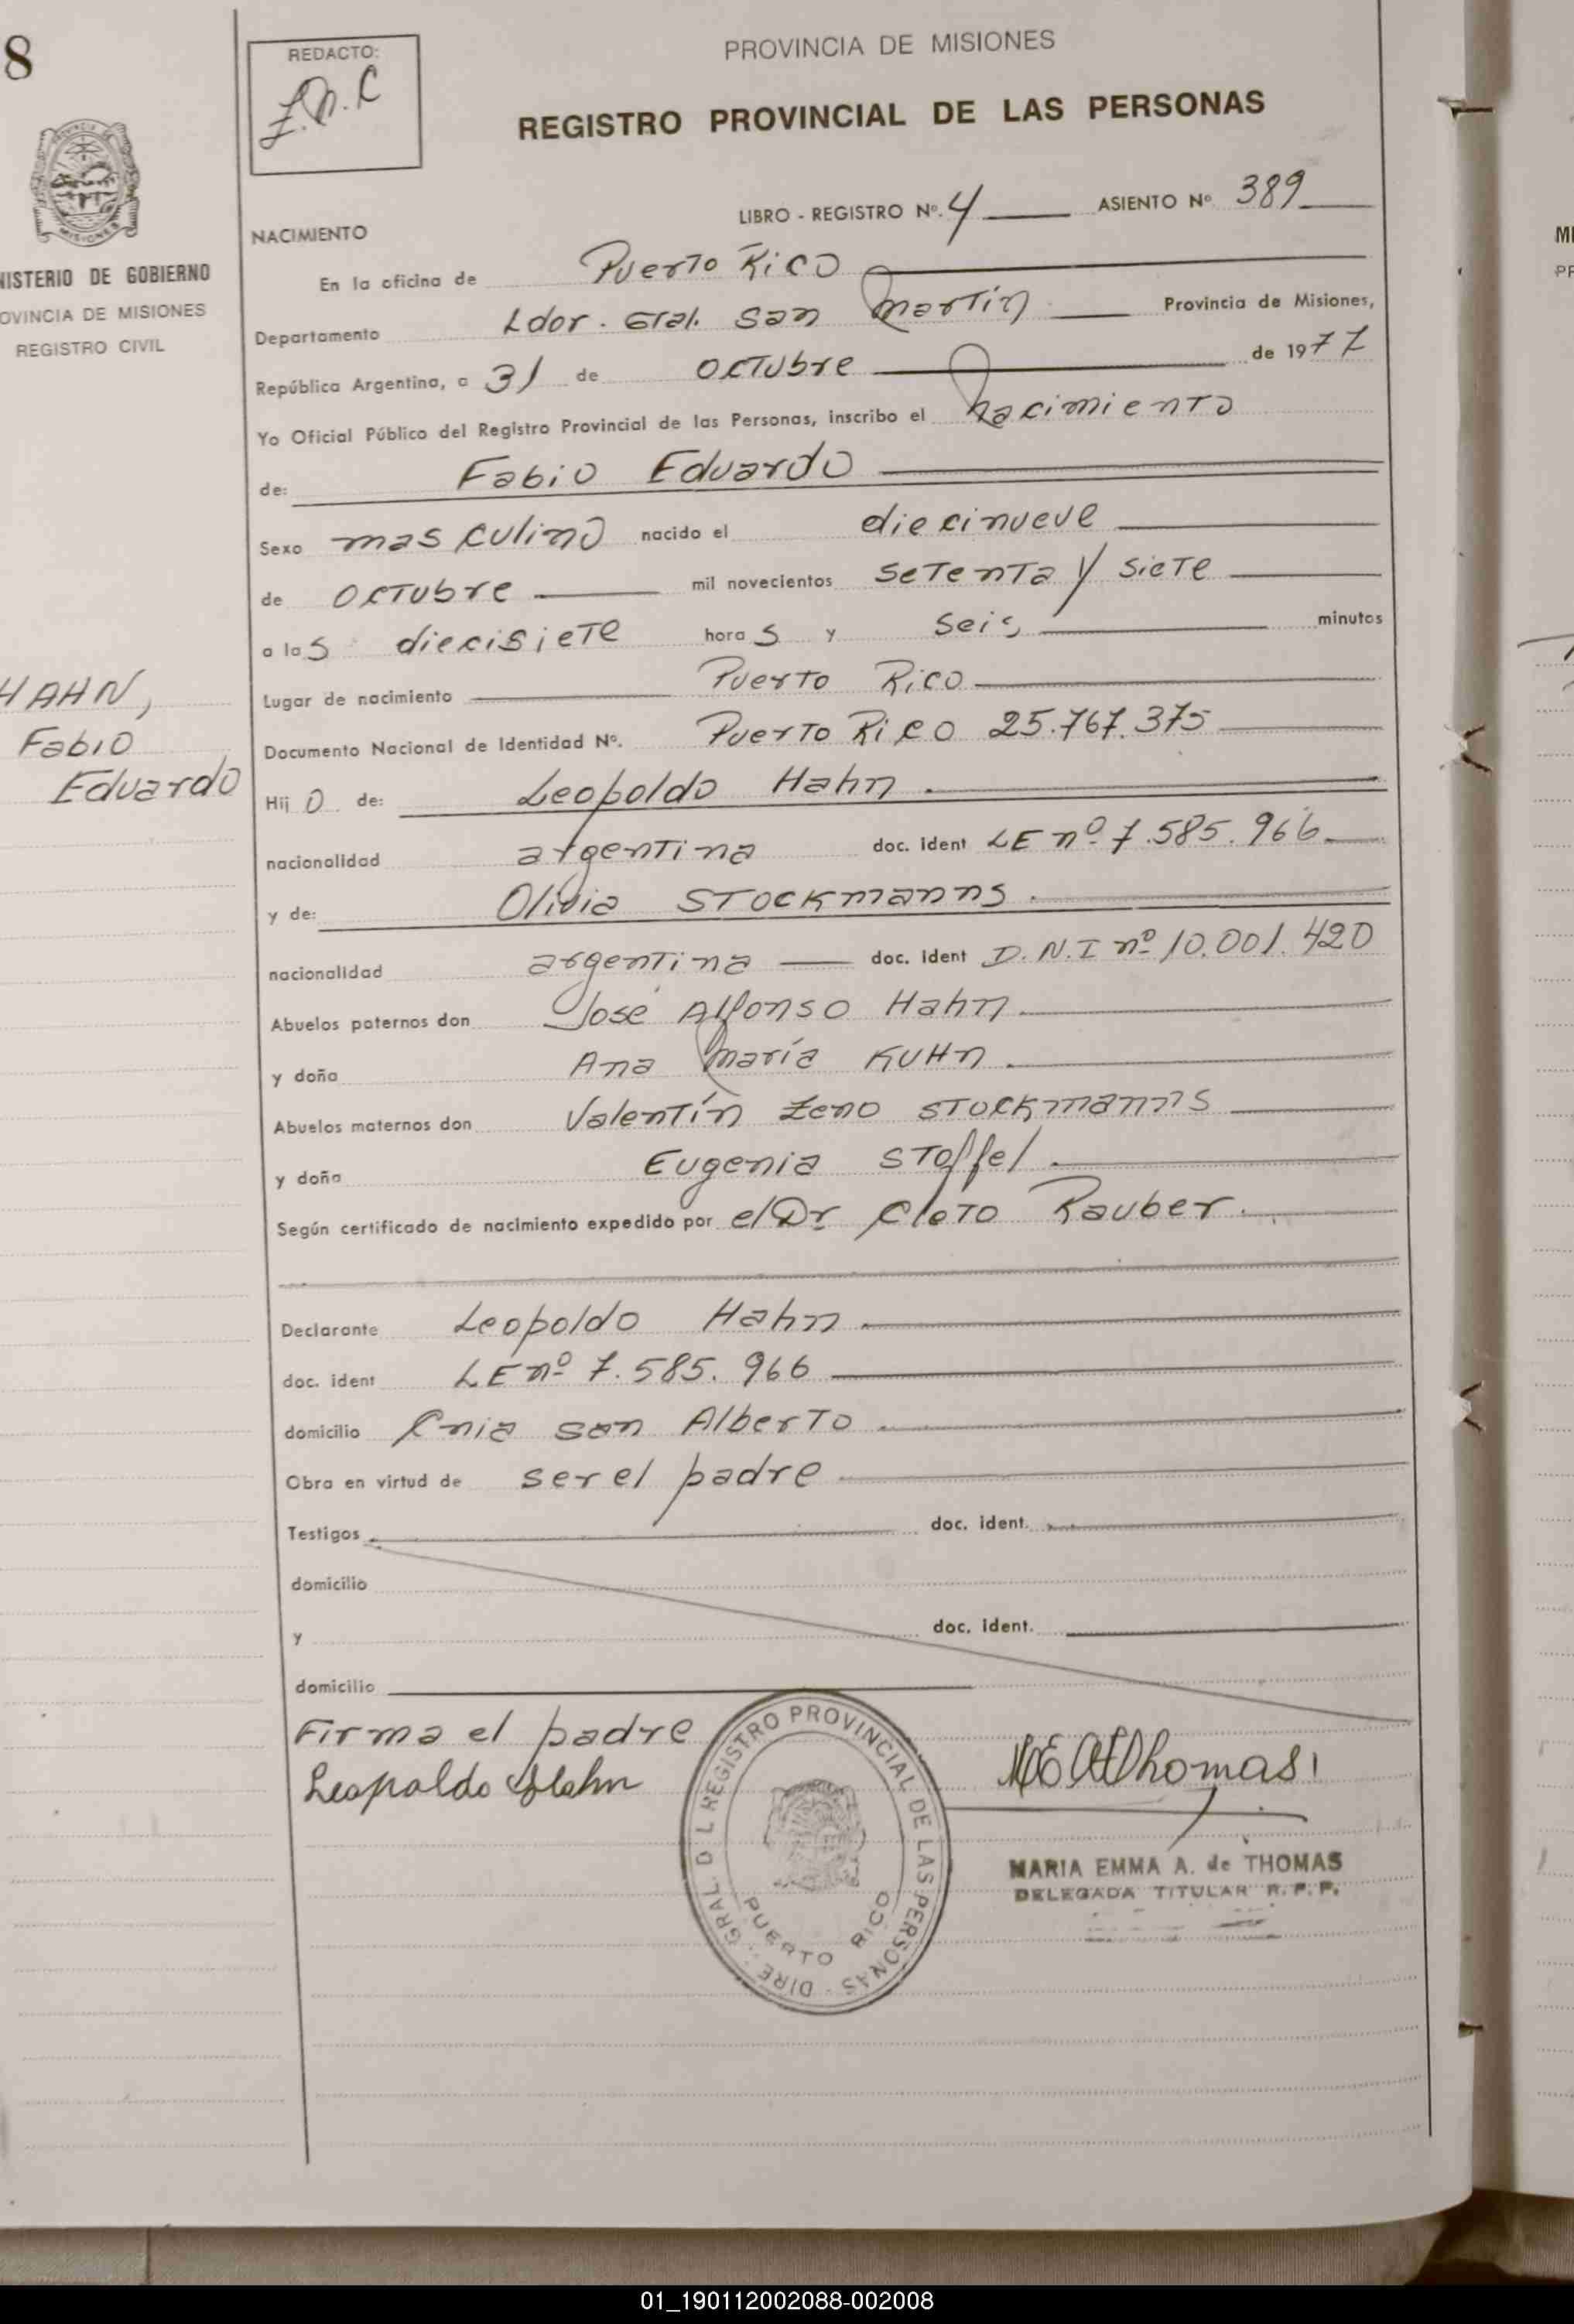 8
REDACTO:
PROVINCIA DE MISIONES
REGISTRO PROVINCIAL DE LAS PERSONAS
NISTERIO DE GOBIERNO
OVINCIA DE MISIONES
REGISTRO CIVIL
HAHN,
Fabio
Eduardo
LIBRO - REGISTRO Nº. 4 ASIENTO Nº 389
NACIMIENTO
En la oficina de Puerto Rico
Departamento Ldor. Gral. San Martín Provincia de Misiones,
República Argentina, a 31 de Octubre de 1977
Yo Oficial Público del Registro Provincial de las Personas, inscribo el nacimiento
de: Fabio Eduardo
Sexo masculino nacido el diecinueve
de Octubre mil novecientos setenta y siete
a las diecisiete horas y seis minutos
Lugar de nacimiento Puerto Rico
Documento Nacional de Identidad Nº. Puerto Rico 25.767.375
Hijo de: Leopoldo Hahn.
nacionalidad argentina doc. ident LE nº 7.585.966
y de: Olivia Stockmanns.
nacionalidad argentina doc. ident D.N.I nº 10.001.420
Abuelos paternos don José Alfonso Hahn
y doña Ana María Kuhn.
Abuelos maternos don Valentín Zeno Stockmanns
y doña Eugenia Stoffel.
Según certificado de nacimiento expedido por el Dr Cleto Rauber.
Declarante Leopoldo Hahn.
doc. ident LE nº 7.585.966
domicilio Cnia San Alberto
Obra en virtud de ser el padre
Testigos doc. ident.
domicilio
y doc. ident.
domicilio
Firma el padre
Leopoldo Hahn
DIRE . GRAL. D L REGISTRO PROVINCIAL DE LAS PERSONAS
PUERTO RICO
MARIA EMMA A. de THOMAS
DELEGADA TITULAR R.P.P.
01_190112002088-002008